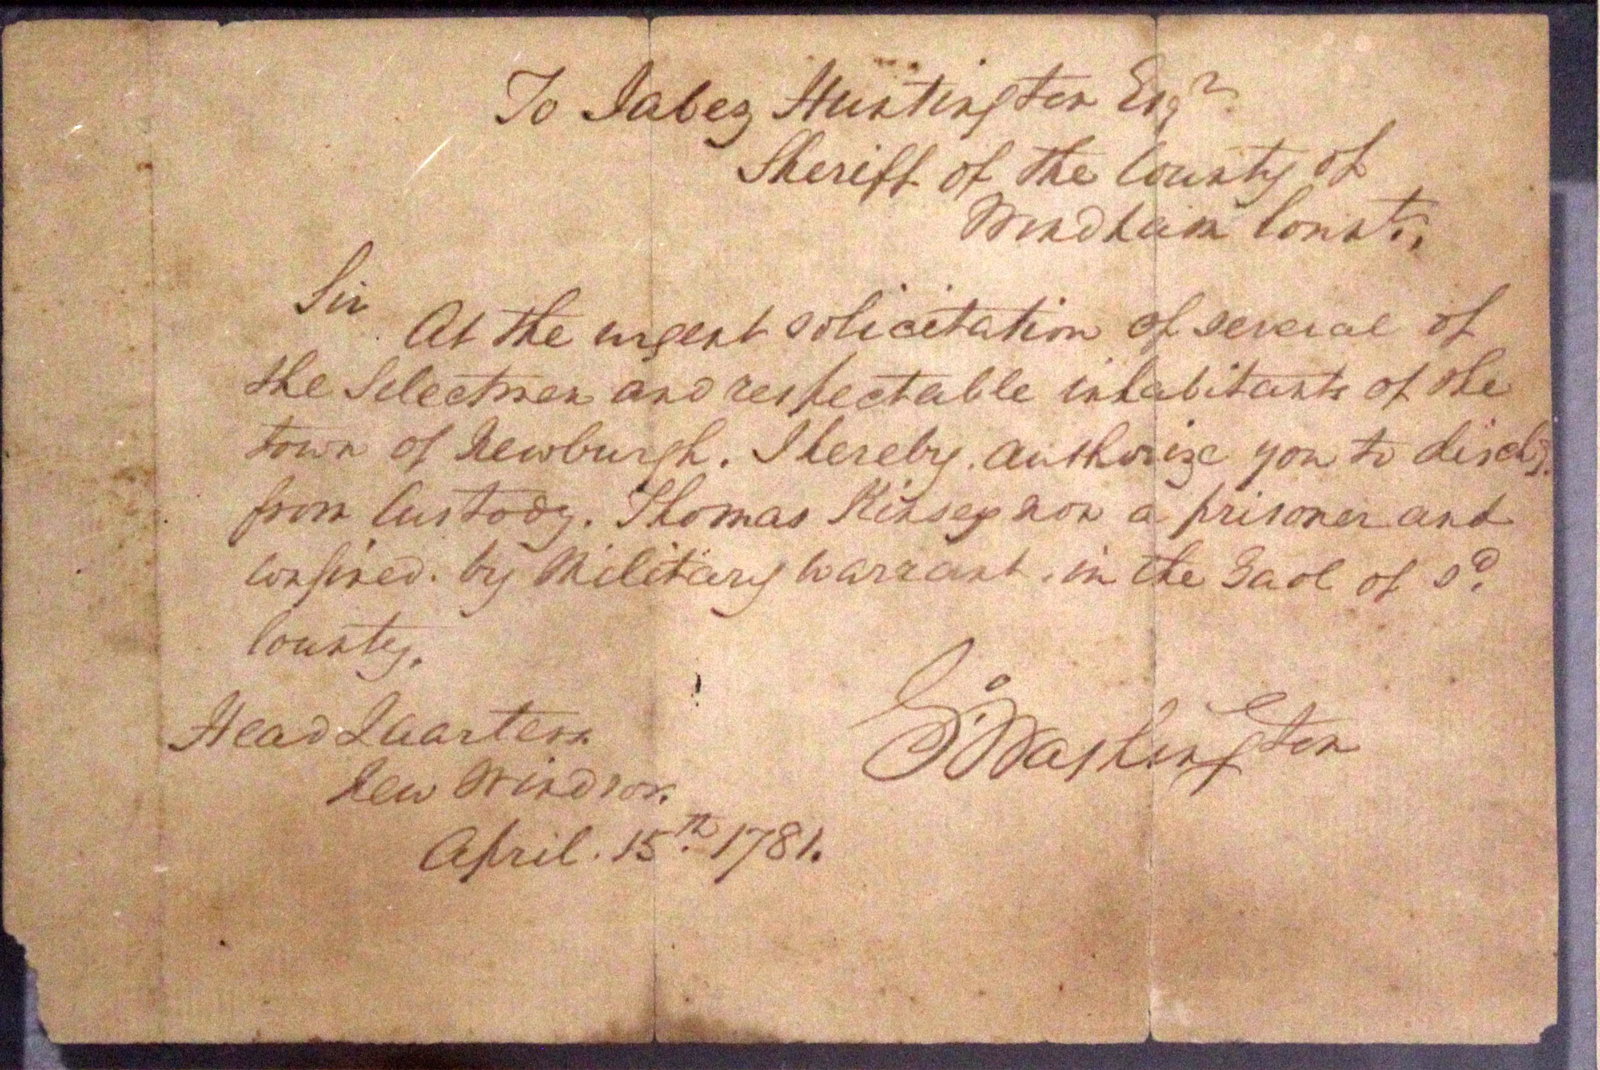 To Jabez Huntington Esqr
Sheriff of the County of
Windham Connt.
Sir
At the urgent solicitation of several of
the Selectmen and respectable inhabitants of the
town of Newburgh. I hereby. authorize you to dischg.
from Custody. Thomas Kinsey now a prisoner and
confined. by Military warrant. in the Gaol of sd.
County.
G:Washington
Head Quarters.
New Windsor.
April. 15th. 1781.